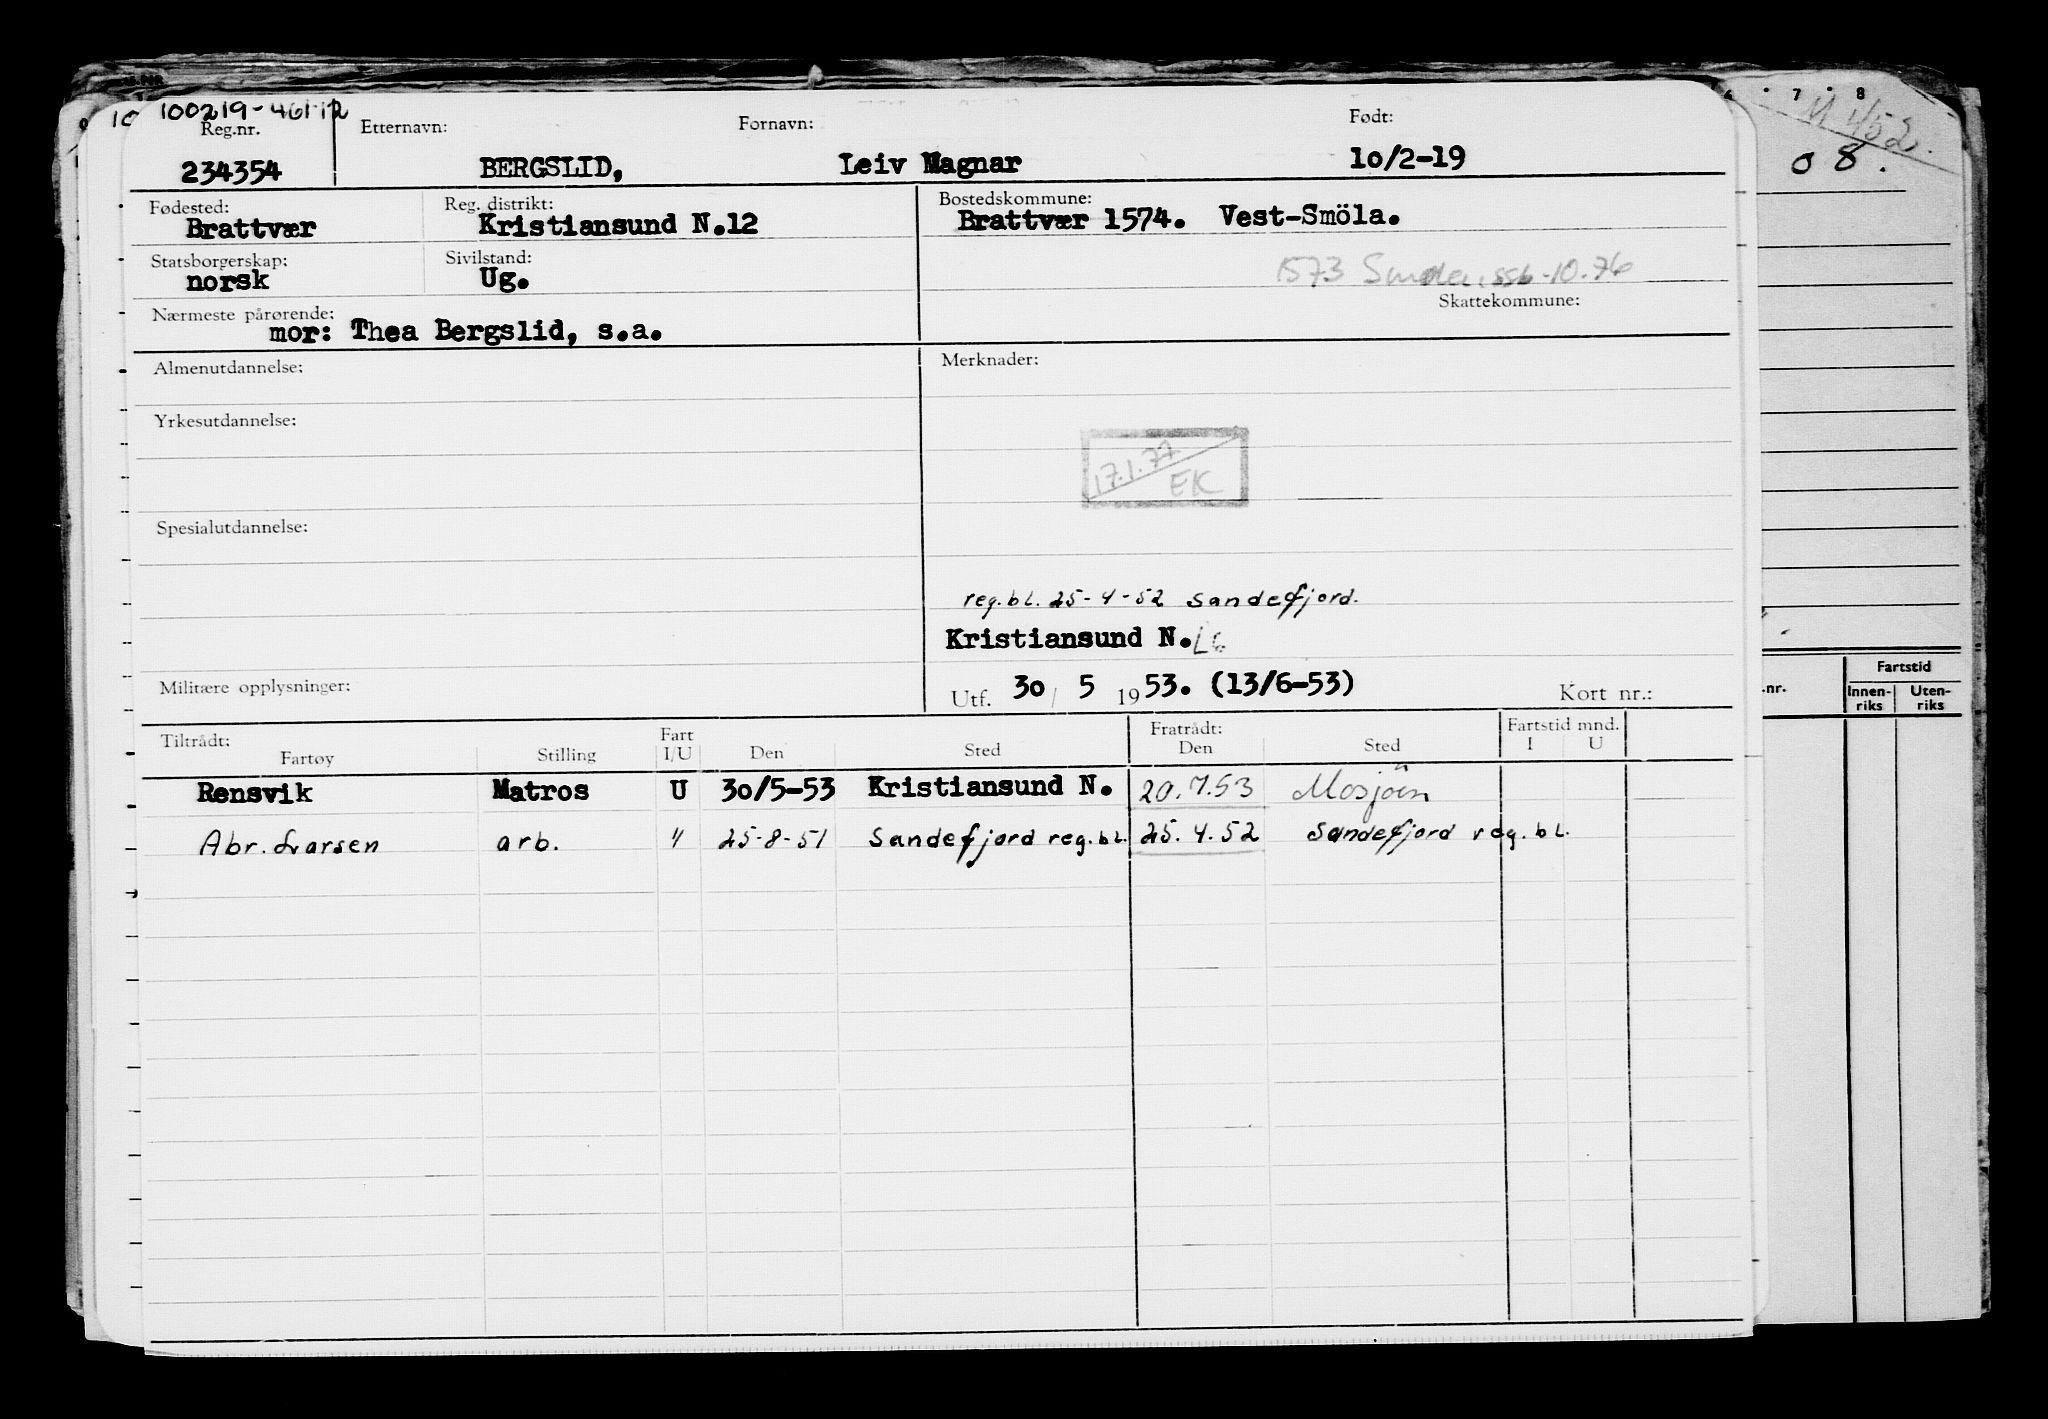 100219-46112
Reg.nr. Etternavn: Fornavn: Født:
234354 BERGSLID, Leiv Magnar 10/2-19
Fødested: Reg. distrikt: Bostedskommune:
Brattvær Kristiansund N.12 Brattvær 1574. Vest-Smöla.
Statsborgerskap: Sivilstand:
norsk Ug. 1573 -10.76
Skattekommune:
Nærmeste pårørende:
mor: Thea Bergslid, s.a.
Almenutdannelse: Merknader:
Yrkesutdannelse:
17.1.77
EK
Spesialutdannelse:
reg.bl. 25-4-52 Sandefjord.
Kristiansund N.
Militære opplysninger: Utf. 30/ 5 1953. (13/6-53) Kort nr.:
Tiltrådt: Fratrådt: Fartstid mnd.
Fartøy Stilling Fart I/U Den Sted Den Sted I U
Rensvik Matros U 30/5-53 Kristiansund N. 20.7.53 Mosjöen
Abr. Larsen arb. " 25-8-51 Sandefjord reg.bl. 25.4.52 Sandefjord reg.bl.
7 8
M 452.
08.
.nr. Fartstid
Innen-riks Uten-riks